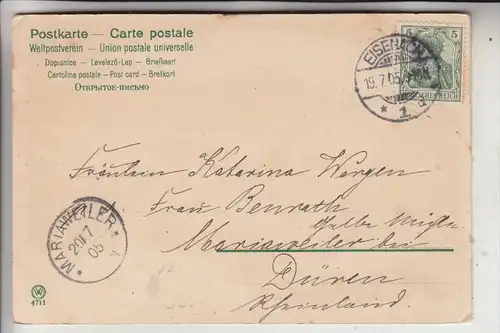 Postkarte — Carte postale
Weltpostverein — Union postale universelle
Dopisnice — Levelezö-Lap — Briefkaart
Cartolina postale — Post card — Brefkort
Открытое-письмо
5 5
EISENACH
19.7.05
* 1 d
Fräulein Katerina Wergen
Frau Benrath
Mariaweiler bei
Düren
Rheinland.
MARIAWEILER
20/7
05
W
4711